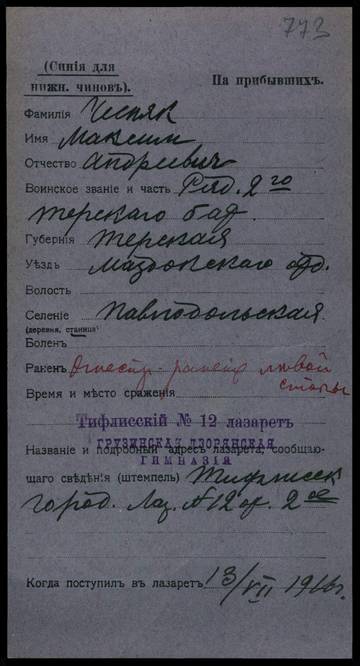 773
(Синія для
нижн. чиновъ).
На прибывшихъ.
Фамилія
Имя Максим
Отчество Андреевич
Воинское званіе и часть Ряд. 2го
Терскаго бат.
Губернія Терская
Уѣздъ Маздокскаго отд.
Волость
Селеніе Павлодольская
(деревня, станица)
Боленъ
Раненъ Огнестр. ранение лѣвой
стопы
Время и мѣсто сраженія
Тифлисскій № 12 лазаретъ
ГРУЗИНСКАЯ ДВОРЯНСКАЯ
ГИМНАЗІЯ
Названіе и подробный адресъ лазарета, сообщаю-
щаго свѣдѣнія (штемпель) Тифлисск
город. Лаз. N 12 от. 2ое
Когда поступилъ въ лазаретъ 13/VII 1916г.